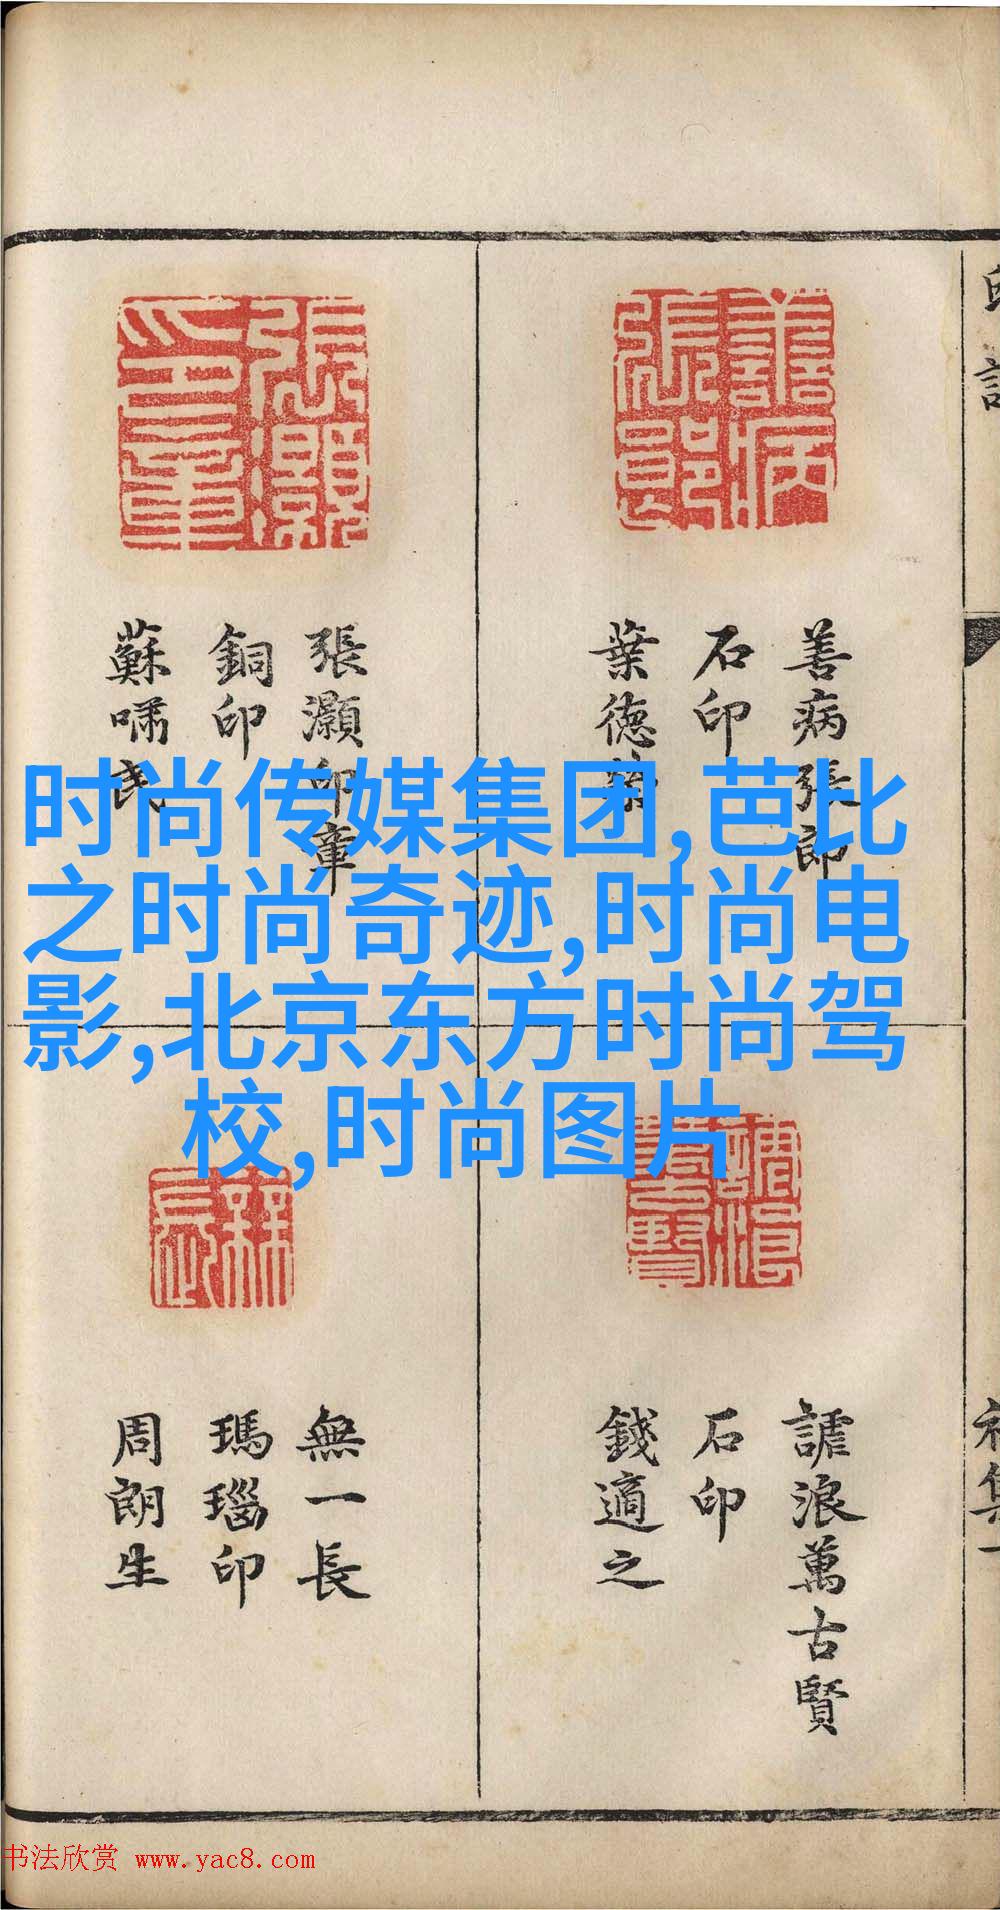 善病張郎
石印
葉德榮
張灝印章
銅印
蘇嘯民
时尚传媒集团,芭比
之时尚奇迹,时尚电
影,北京东方时尚驾
校,时尚图片
謔浪萬古賢
石印
錢適之
無一長
瑪瑙印
周朗生
初集一
书法欣赏 www.yac8.com